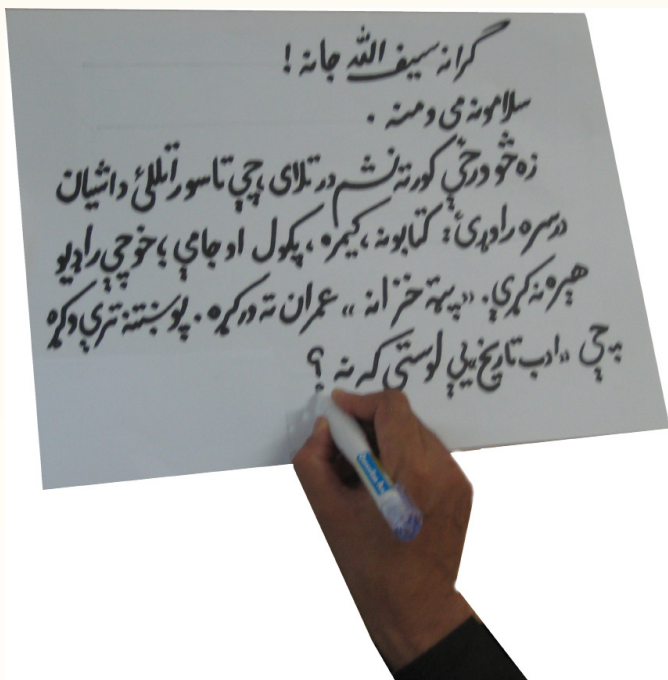 ګرانه سیف الله جانه !
سلامونه می ومنه .
زه څو ورځې کورته نشم در تلای ، چې تاسو راتللئ دا شیان
درسره راوړئ: کتابونه ، کیمره ، پکول او جامې ؛ خو چې راډیو
هېره نه کړې. «پټه خزانه» عمران ته ورکړه . پوښتنه ترې وکړه
چې «ادب تاریخ یې لوستی که نه ؟